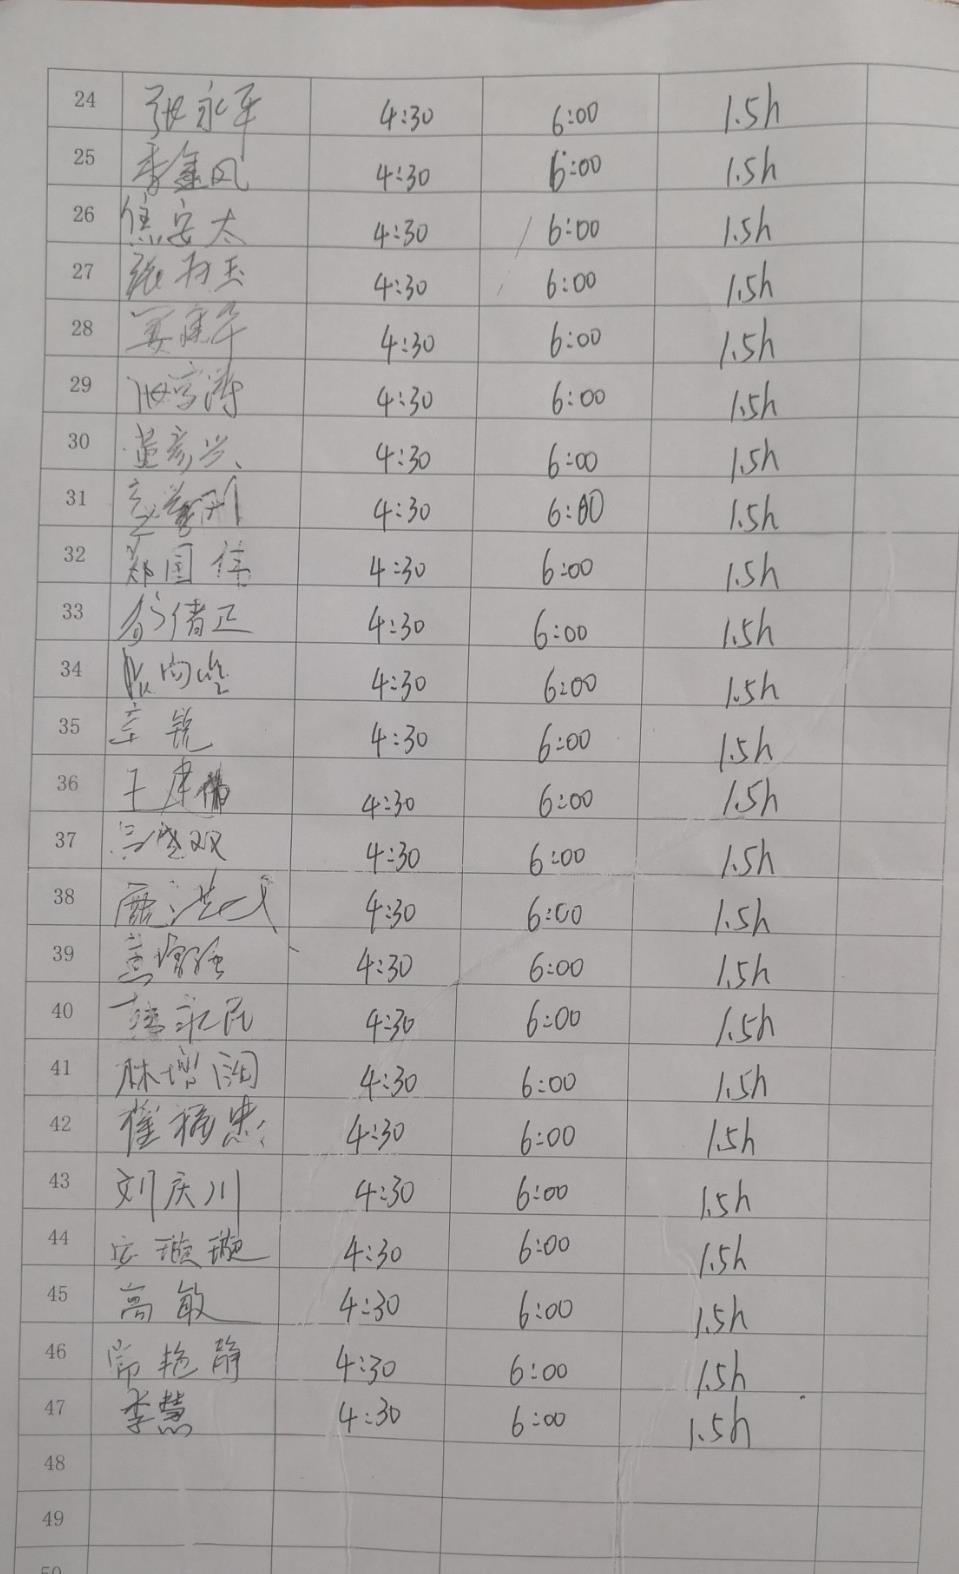 24 张永平 4:30 6:00 1.5h
25 李鑫风 4:30 6:00 1.5h
26 焦安太 4:30 6:00 1.5h
27 张 玉 4:30 6:00 1.5h
28 姜建军 4:30 6:00 1.5h
29 4:30 6:00 1.5h
30 董彦兴 4:30 6:00 1.5h
31 4:30 6:00 1.5h
32 郑国伟 4:30 6:00 1.5h
33 正 4:30 6:00 1.5h
34 4:30 6:00 1.5h
35 辛锐 4:30 6:00 1.5h
36 王建 4:30 6:00 1.5h
37 双 4:30 6:00 1.5h
38 4:30 6:00 1.5h
39 4:30 6:00 1.5h
40 永民 4:30 6:00 1.5h
41 林增阔 4:30 6:00 1.5h
42 崔 忠 4:30 6:00 1.5h
43 刘庆川 4:30 6:00 1.5h
44 安璇璇 4:30 6:00 1.5h
45 高敏 4:30 6:00 1.5h
46 常艳静 4:30 6:00 1.5h
47 李慧 4:30 6:00 1.5h
48
49
50